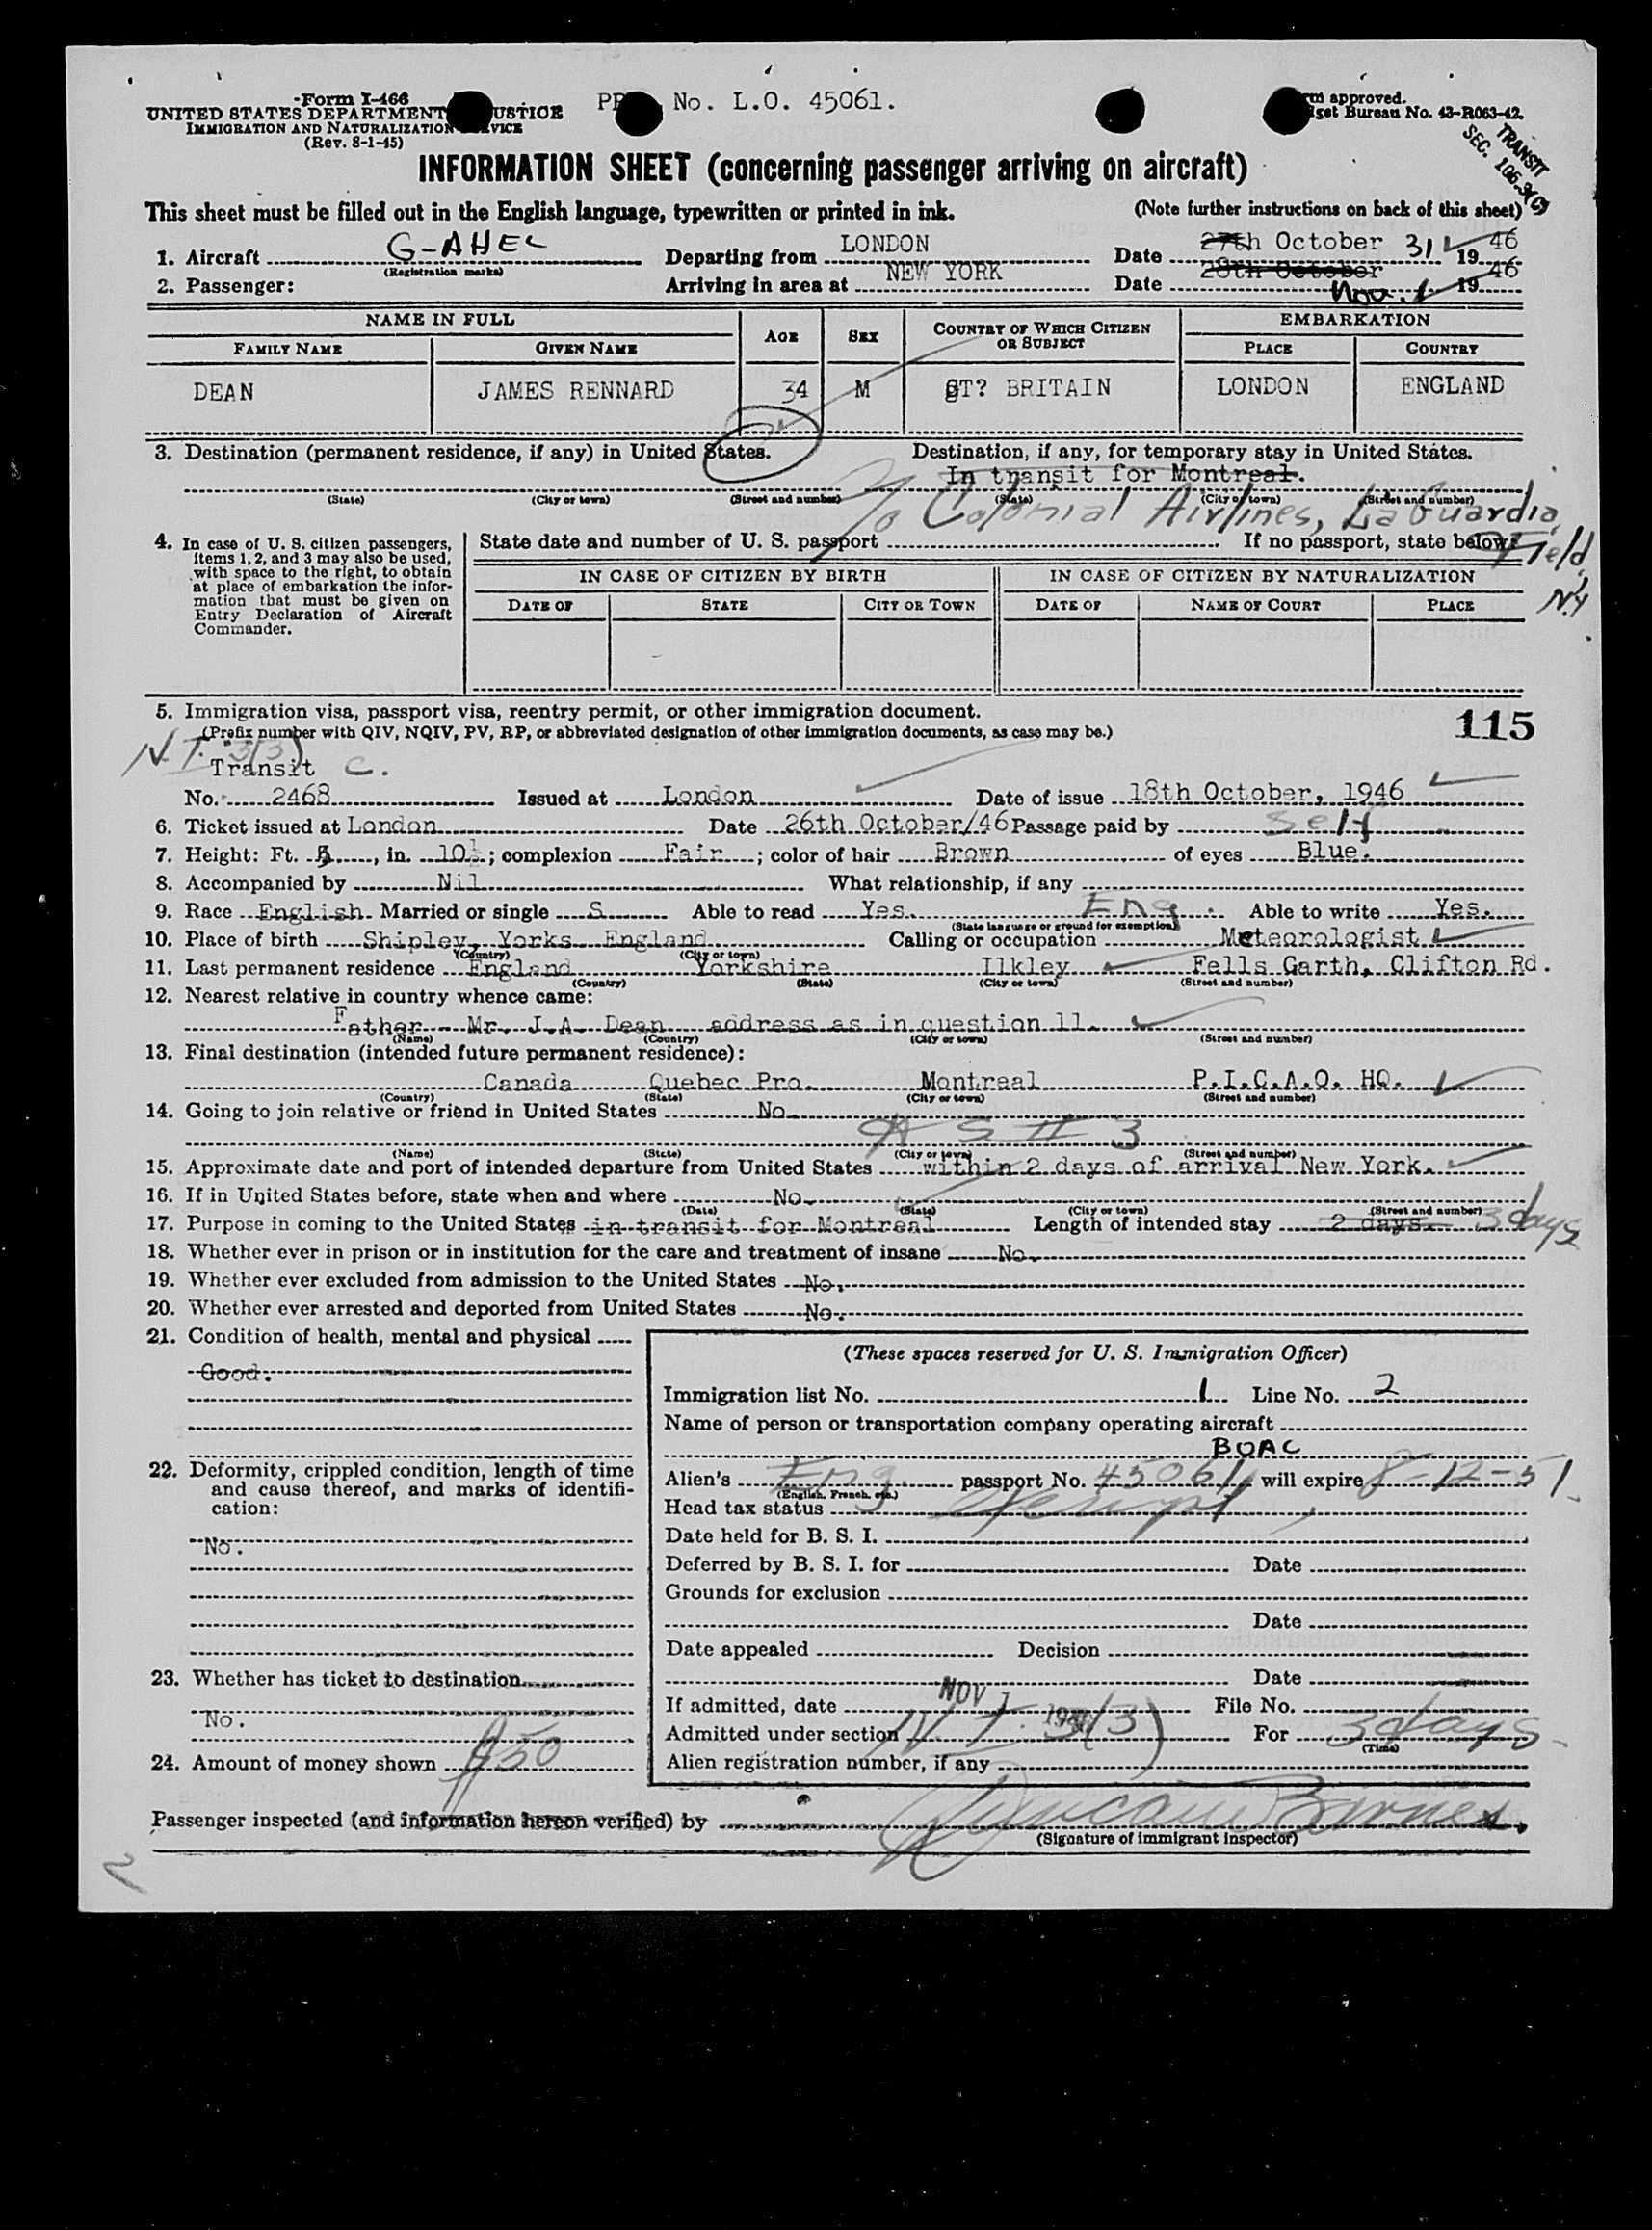 Form I-466
UNITED STATES DEPARTMENT USTICE
IMMIGRATION AND NATURALIZATION VICE
(Rev. 8-1-45)
No. L.O. 45061.
approved.
get Bureau No. 43-R063-42.
TRANSIT
INFORMATION SHEET (concerning passenger arriving on aircraft)
This sheet must be filled out in the English language, typewritten or printed in ink. (Note further instructions on back of this sheet)
1. Aircraft G-AHEL Departing from LONDON Date 27th October 31 1946
(Registration marks)
2. Passenger: Arriving in area at NEW YORK Date 28th October Nov. 1 1946
NAME IN FULL AGE SEX COUNTRY OF WHICH CITIZEN OR SUBJECT EMBARKATION
FAMILY NAME GIVEN NAME PLACE COUNTRY
DEAN JAMES RENNARD 34 M GT? BRITAIN LONDON ENGLAND
3. Destination (permanent residence, if any) in United States. Destination, if any, for temporary stay in United States.
In transit for Montreal.
(State) (City or town) (Street and number) (State) (City or town) (Street and number)
c/o Colonial Airlines, La Guardia Field, N.Y.
4. In case of U. S. citizen passengers, items 1, 2, and 3 may also be used, with space to the right, to obtain at place of embarkation the information that must be given on Entry Declaration of Aircraft Commander.
State date and number of U. S. passport If no passport, state below:
IN CASE OF CITIZEN BY BIRTH IN CASE OF CITIZEN BY NATURALIZATION
DATE OF STATE CITY OR TOWN DATE OF NAME OF COURT PLACE
5. Immigration visa, passport visa, reentry permit, or other immigration document. 115
(Prefix number with QIV, NQIV, PV, RP, or abbreviated designation of other immigration documents, as case may be.)
N.T. 3(3)
Transit C.
No. 2468 Issued at London Date of issue 18th October, 1946
6. Ticket issued at London Date 26th October/46 Passage paid by Self
7. Height: Ft. 5, in. 10½; complexion Fair; color of hair Brown of eyes Blue.
8. Accompanied by Nil What relationship, if any
9. Race English Married or single S Able to read Yes. Eng. Able to write Yes.
(State language or ground for exemption)
10. Place of birth Shipley, Yorks England Calling or occupation Meteorologist
(Country) (City or town)
11. Last permanent residence England Yorkshire Ilkley Fells Garth, Clifton Rd.
(Country) (State) (City or town) (Street and number)
12. Nearest relative in country whence came:
Father - Mr. J.A. Dean address as in question 11.
(Name) (Country) (City or town) (Street and number)
13. Final destination (intended future permanent residence):
Canada Quebec Pro. Montreal P.I.C.A.O. HQ.
(Country) (State) (City or town) (Street and number)
14. Going to join relative or friend in United States No
AS # 3
(Name) (State) (City or town) (Street and number)
15. Approximate date and port of intended departure from United States within 2 days of arrival New York.
16. If in United States before, state when and where No.
(Date) (State) (City or town) (Street and number)
17. Purpose in coming to the United States in transit for Montreal Length of intended stay 2 days. 3 days
18. Whether ever in prison or in institution for the care and treatment of insane No.
19. Whether ever excluded from admission to the United States No.
20. Whether ever arrested and deported from United States No.
21. Condition of health, mental and physical
Good.
22. Deformity, crippled condition, length of time and cause thereof, and marks of identification:
No.
23. Whether has ticket to destination
No.
24. Amount of money shown $50
(These spaces reserved for U. S. Immigration Officer)
Immigration list No. 1 Line No. 2
Name of person or transportation company operating aircraft
BOAC
Alien's Eng. passport No. 45061 will expire 8-12-51
(English, French, etc.)
Head tax status Exempt
Date held for B. S. I.
Deferred by B. S. I. for Date
Grounds for exclusion
Date
Date appealed Decision
Date
If admitted, date NOV 1 File No.
Admitted under section N.T. 3(3) For 3 days
(Time)
Alien registration number, if any
Passenger inspected (and information hereon verified) by
(Signature of immigrant inspector)
2